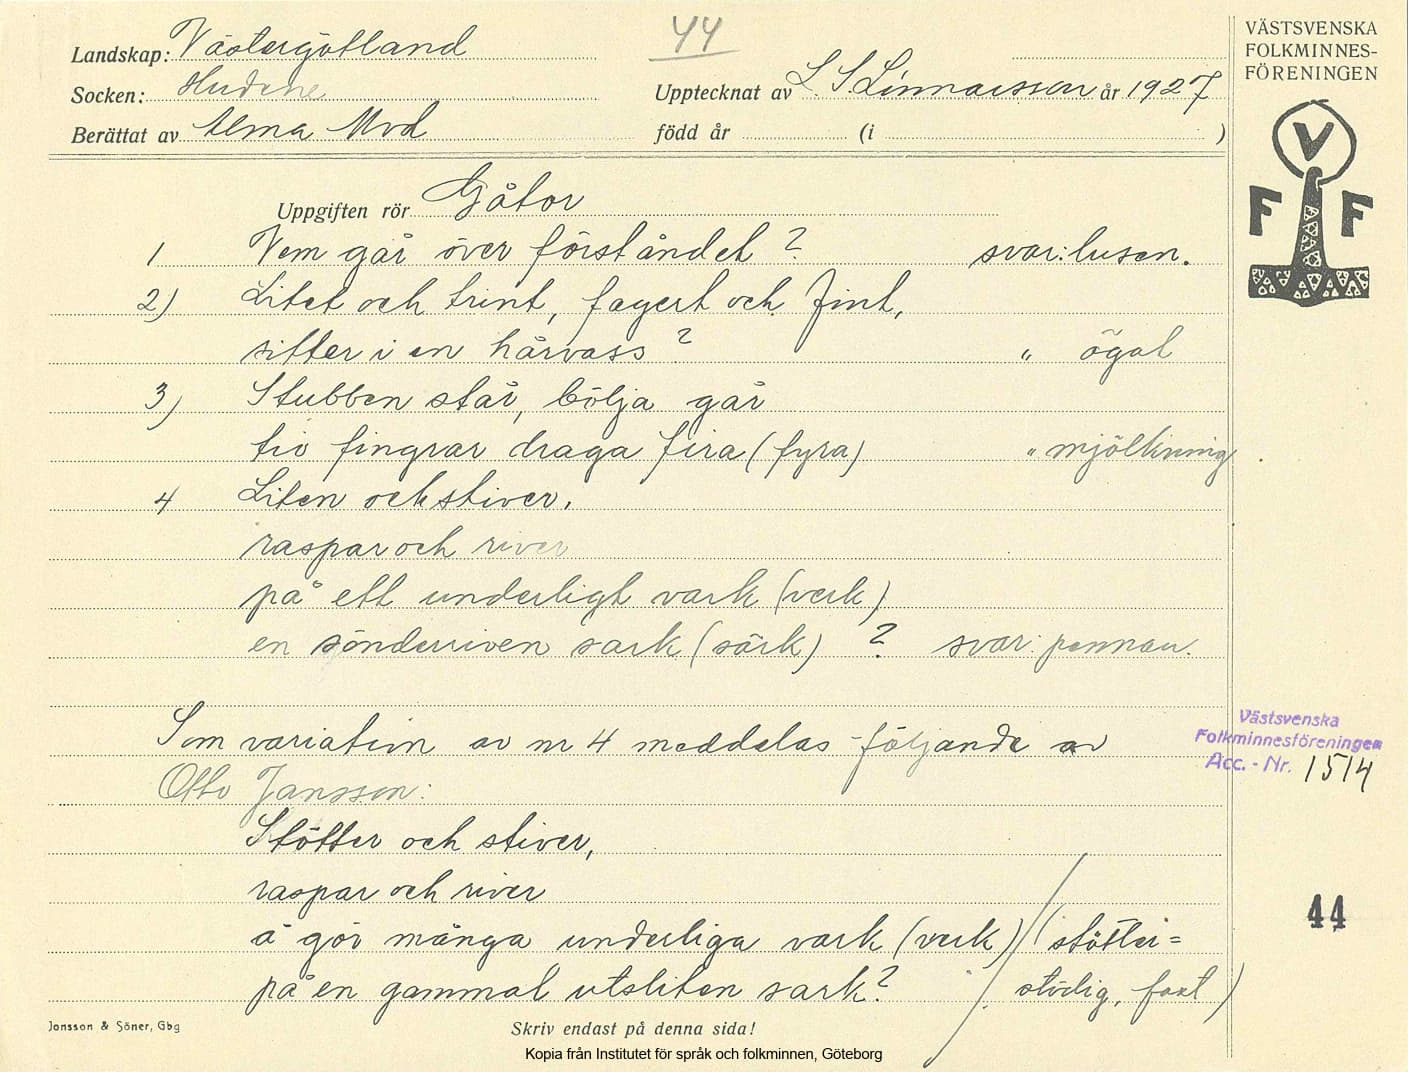 44
VÄSTSVENSKA
FOLKMINNES-
FÖRENINGEN
Landskap: Västergötland
Socken: Hudene
Upptecknat av L. S. Linnarsson år 1927
Berättat av Alma Mod
född år (i )
V
F F
Uppgiften rör Gåtor
1 Vem går över förståndet? svar: lusen.
2) Litet och trint, fagert och fint,
sitter i en hårvass? " ögat
3) Stubben står, bölja går
tio fingrar draga fira (fyra) " mjölkning
4 Liten och stiver,
raspar och river
på ett underligt vark (verk)
en sönderriven sark (särk) ? svar: pennan.
Som variation av nr 4 meddelas följande av
Otto Jansson:
Stötter och stiver,
raspar och river
å gör många underliga vark (verk) (stötter =
på en gammal utsliten sark? stödig, fast)
Västsvenska
Folkminnesföreningen
Acc. - Nr. 1514
44
Jonsson & Söner, Gbg
Skriv endast på denna sida!
Kopia från Institutet för språk och folkminnen, Göteborg